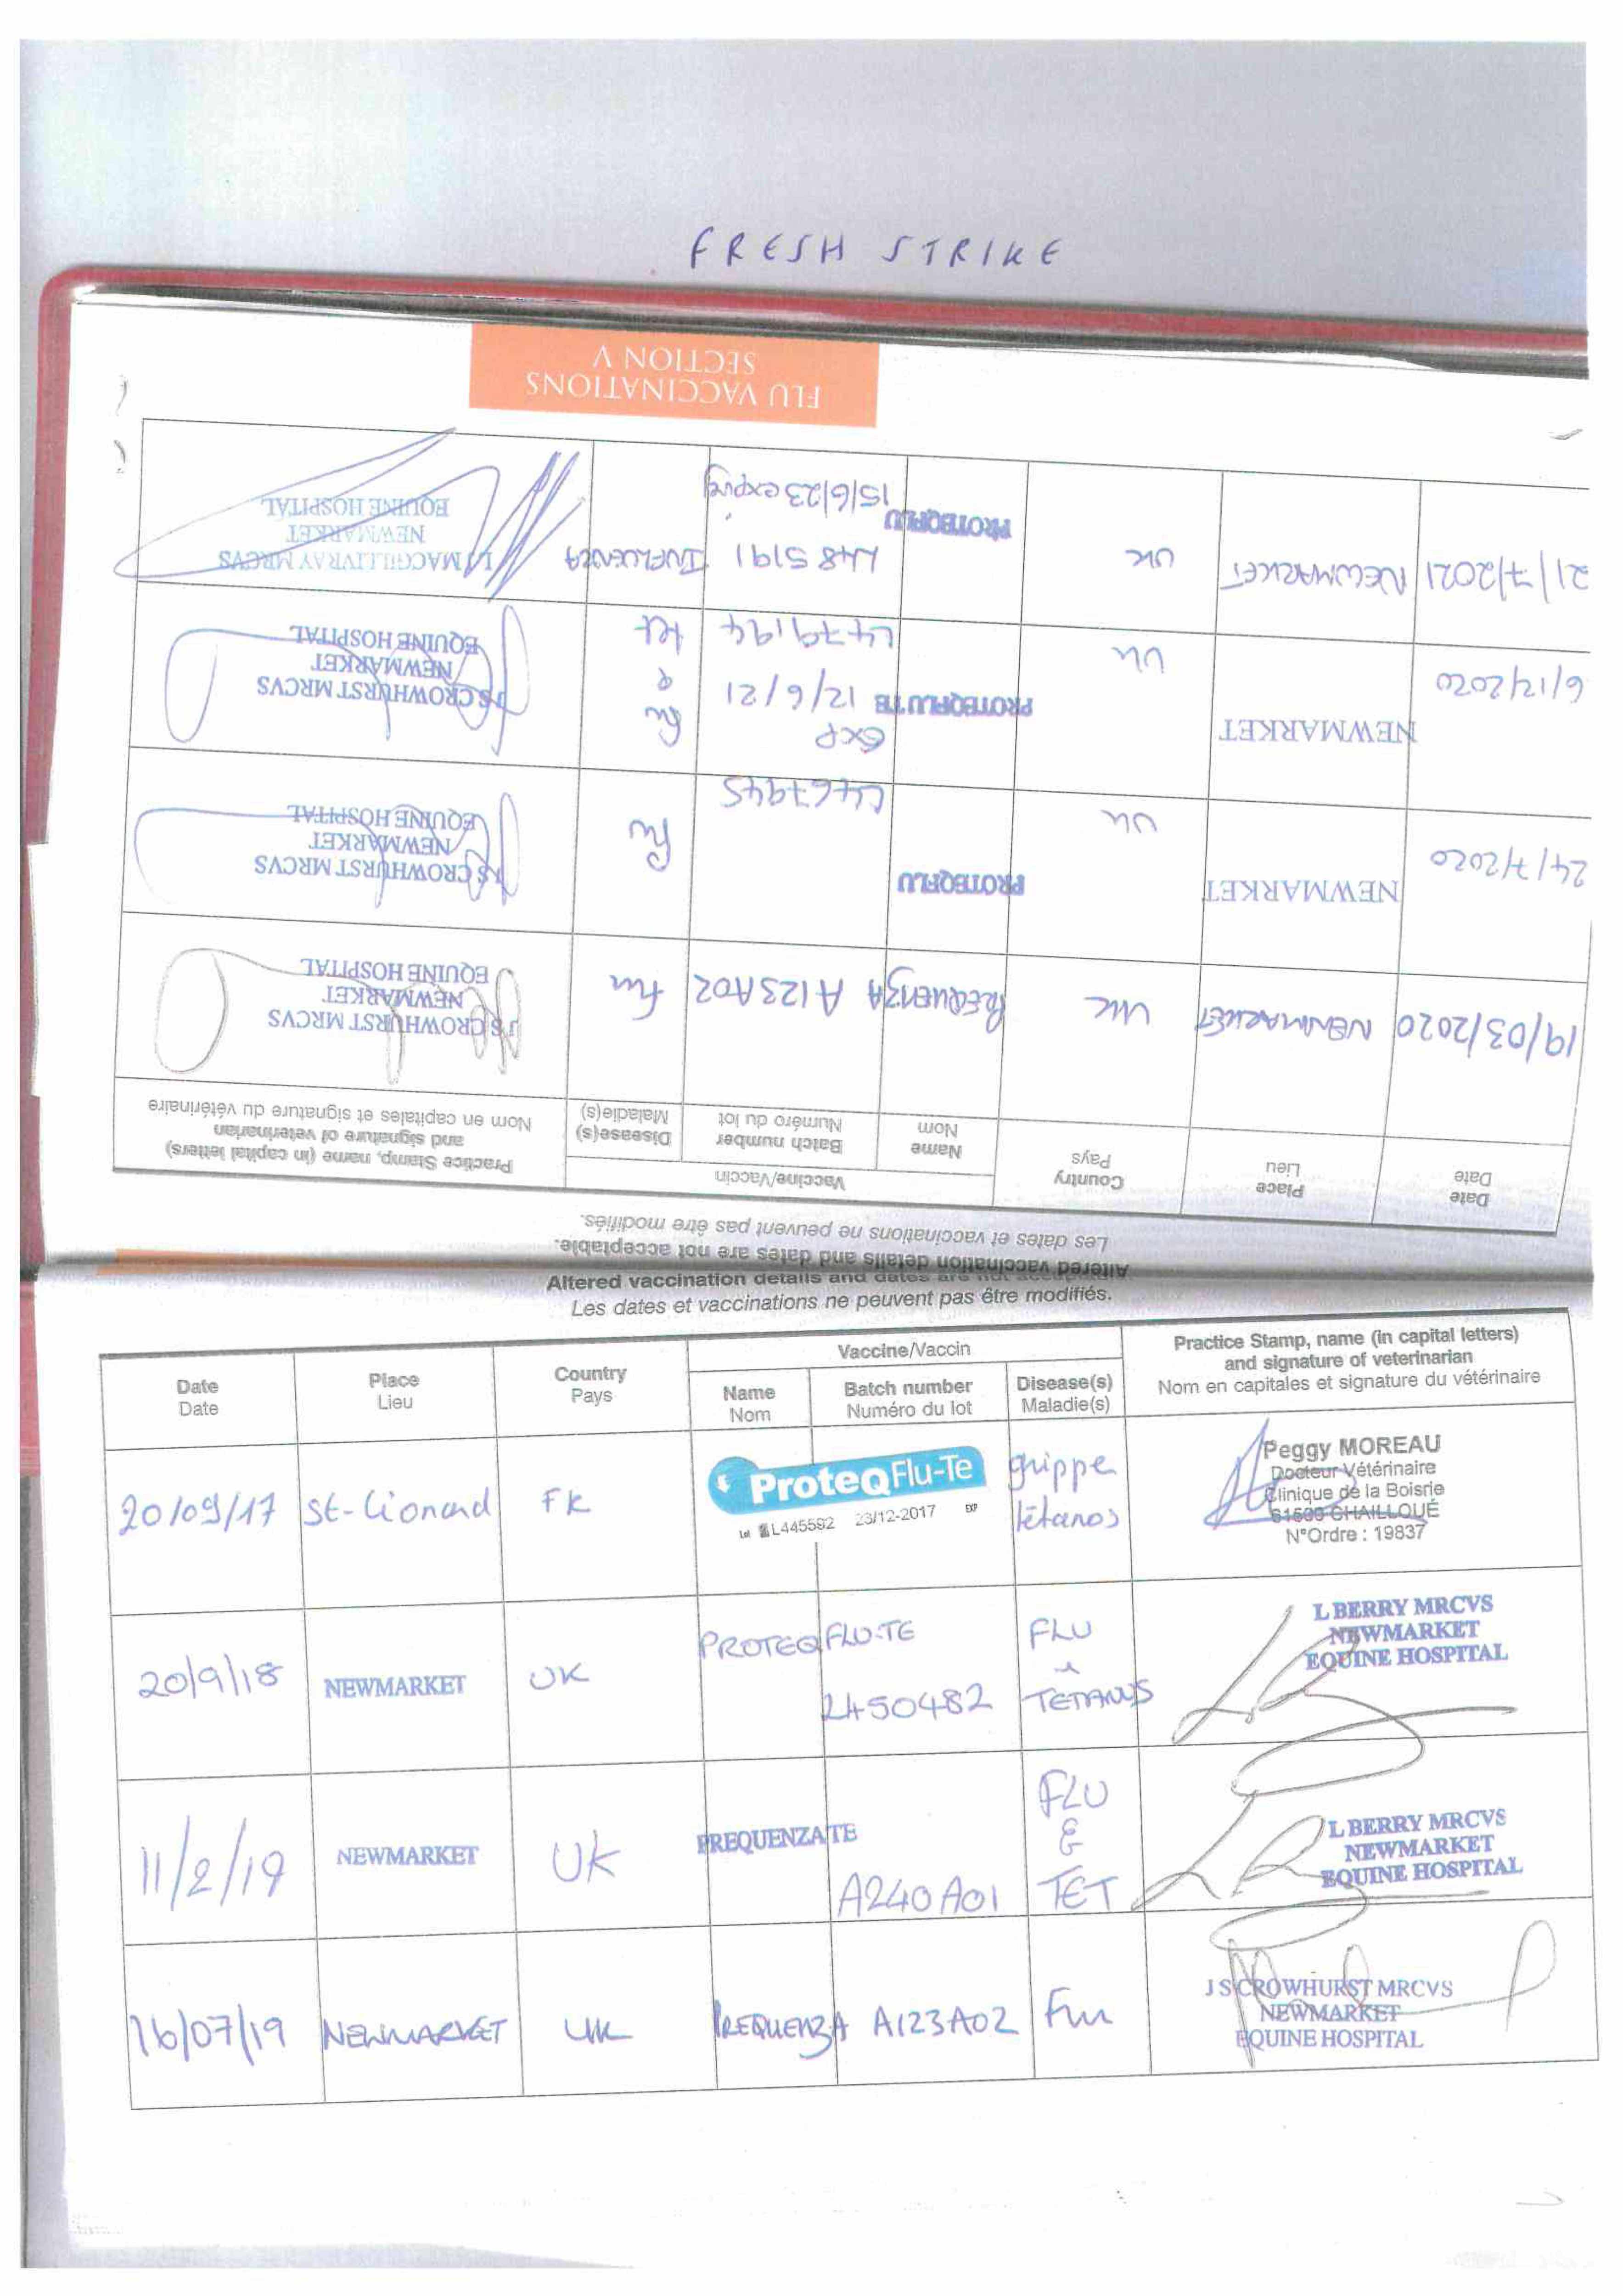 FRESH STRIKE
FLU VACCINATIONS
SECTION V
Altered vaccination details and dates are not acceptable.
Les dates et vaccinations ne peuvent pas être modifiés.
Date
Date
Place
Lieu
Country
Pays
Vaccine/Vaccin
Name
Nom
Batch number
Numéro du lot
Disease(s)
Maladie(s)
Practice Stamp, name (in capital letters)
and signature of veterinarian
Nom en capitales et signature du vétérinaire
19/03/2020 NEWMARKET UK PREQUENZA A123A02 Flu
J S CROWHURST MRCVS
NEWMARKET
EQUINE HOSPITAL
24/7/2020 NEWMARKET UK PROTEQFLU L467945 Flu
J S CROWHURST MRCVS
NEWMARKET
EQUINE HOSPITAL
6/12/2020 NEWMARKET UK PROTEQFLU TE
Exp
12/6/21
L479194
Flu
&
tet
J S CROWHURST MRCVS
NEWMARKET
EQUINE HOSPITAL
21/7/2021 NEWMARKET UK PROTEQFLU L485191 INFLUENZA
15/6/23 expiry
MACGILLIVRAY MRCVS
NEWMARKET
EQUINE HOSPITAL
Altered vaccination details and dates are not
Les dates et vaccinations ne peuvent pas être modifiés.
Date
Date
Place
Lieu
Country
Pays
Vaccine/Vaccin
Name
Nom
Batch number
Numéro du lot
Disease(s)
Maladie(s)
Practice Stamp, name (in capital letters)
and signature of veterinarian
Nom en capitales et signature du vétérinaire
20/09/17 St-Lionard FR
ProteqFlu-Te
Lot L445592 23/12-2017 EXP
grippe
tétanos
Peggy MOREAU
Docteur Vétérinaire
Clinique de la Boisrie
61500 CHAILLOUÉ
N°Ordre : 19837
20/9/18 NEWMARKET UK
PROTEQ FLU-TE
L450482
FLU
&
TETANUS
L BERRY MRCVS
NEWMARKET
EQUINE HOSPITAL
11/2/19 NEWMARKET UK
PREQUENZA TE
A240A01
FLU
&
TET
L BERRY MRCVS
NEWMARKET
EQUINE HOSPITAL
16/07/19 NEWMARKET UK PREQUENZA A123A02 Flu
J S CROWHURST MRCVS
NEWMARKET
EQUINE HOSPITAL